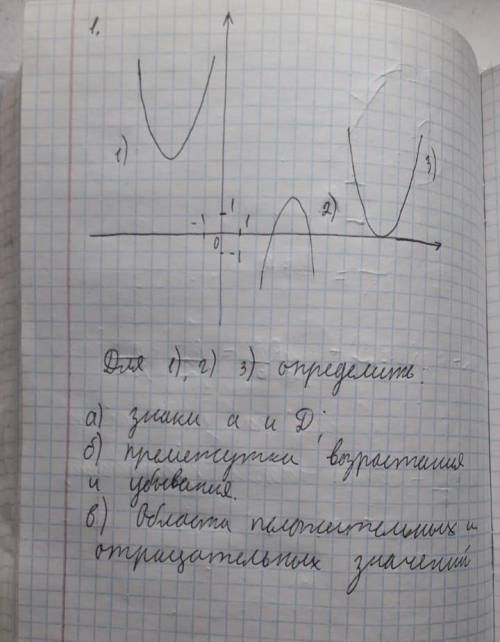 1.
1)
2)
3)
-1 1 1
0 -1
Для 1), 2) 3) определить:
а) знаки а и D;
б) промежутки возрастания
и убывания.
в) Области положительных и
отрицательных значений